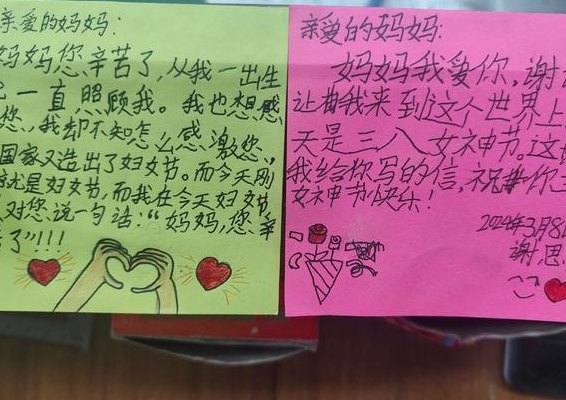 亲爱的妈妈:
妈妈您辛苦了,从我一出生
一直照顾我。我也想感
您,我却不知怎么感激您,
国家又造出了妇女节。而今天刚
就是妇女节,而我在今天妇女节
对您说一句话:“妈妈,您辛
了”!!!
亲爱的妈妈:
妈妈我爱你,谢
让我来到这个世界上
天是三八女神节。这
我给你写的信,祝你
女神节快乐!
2024年3月8
谢思